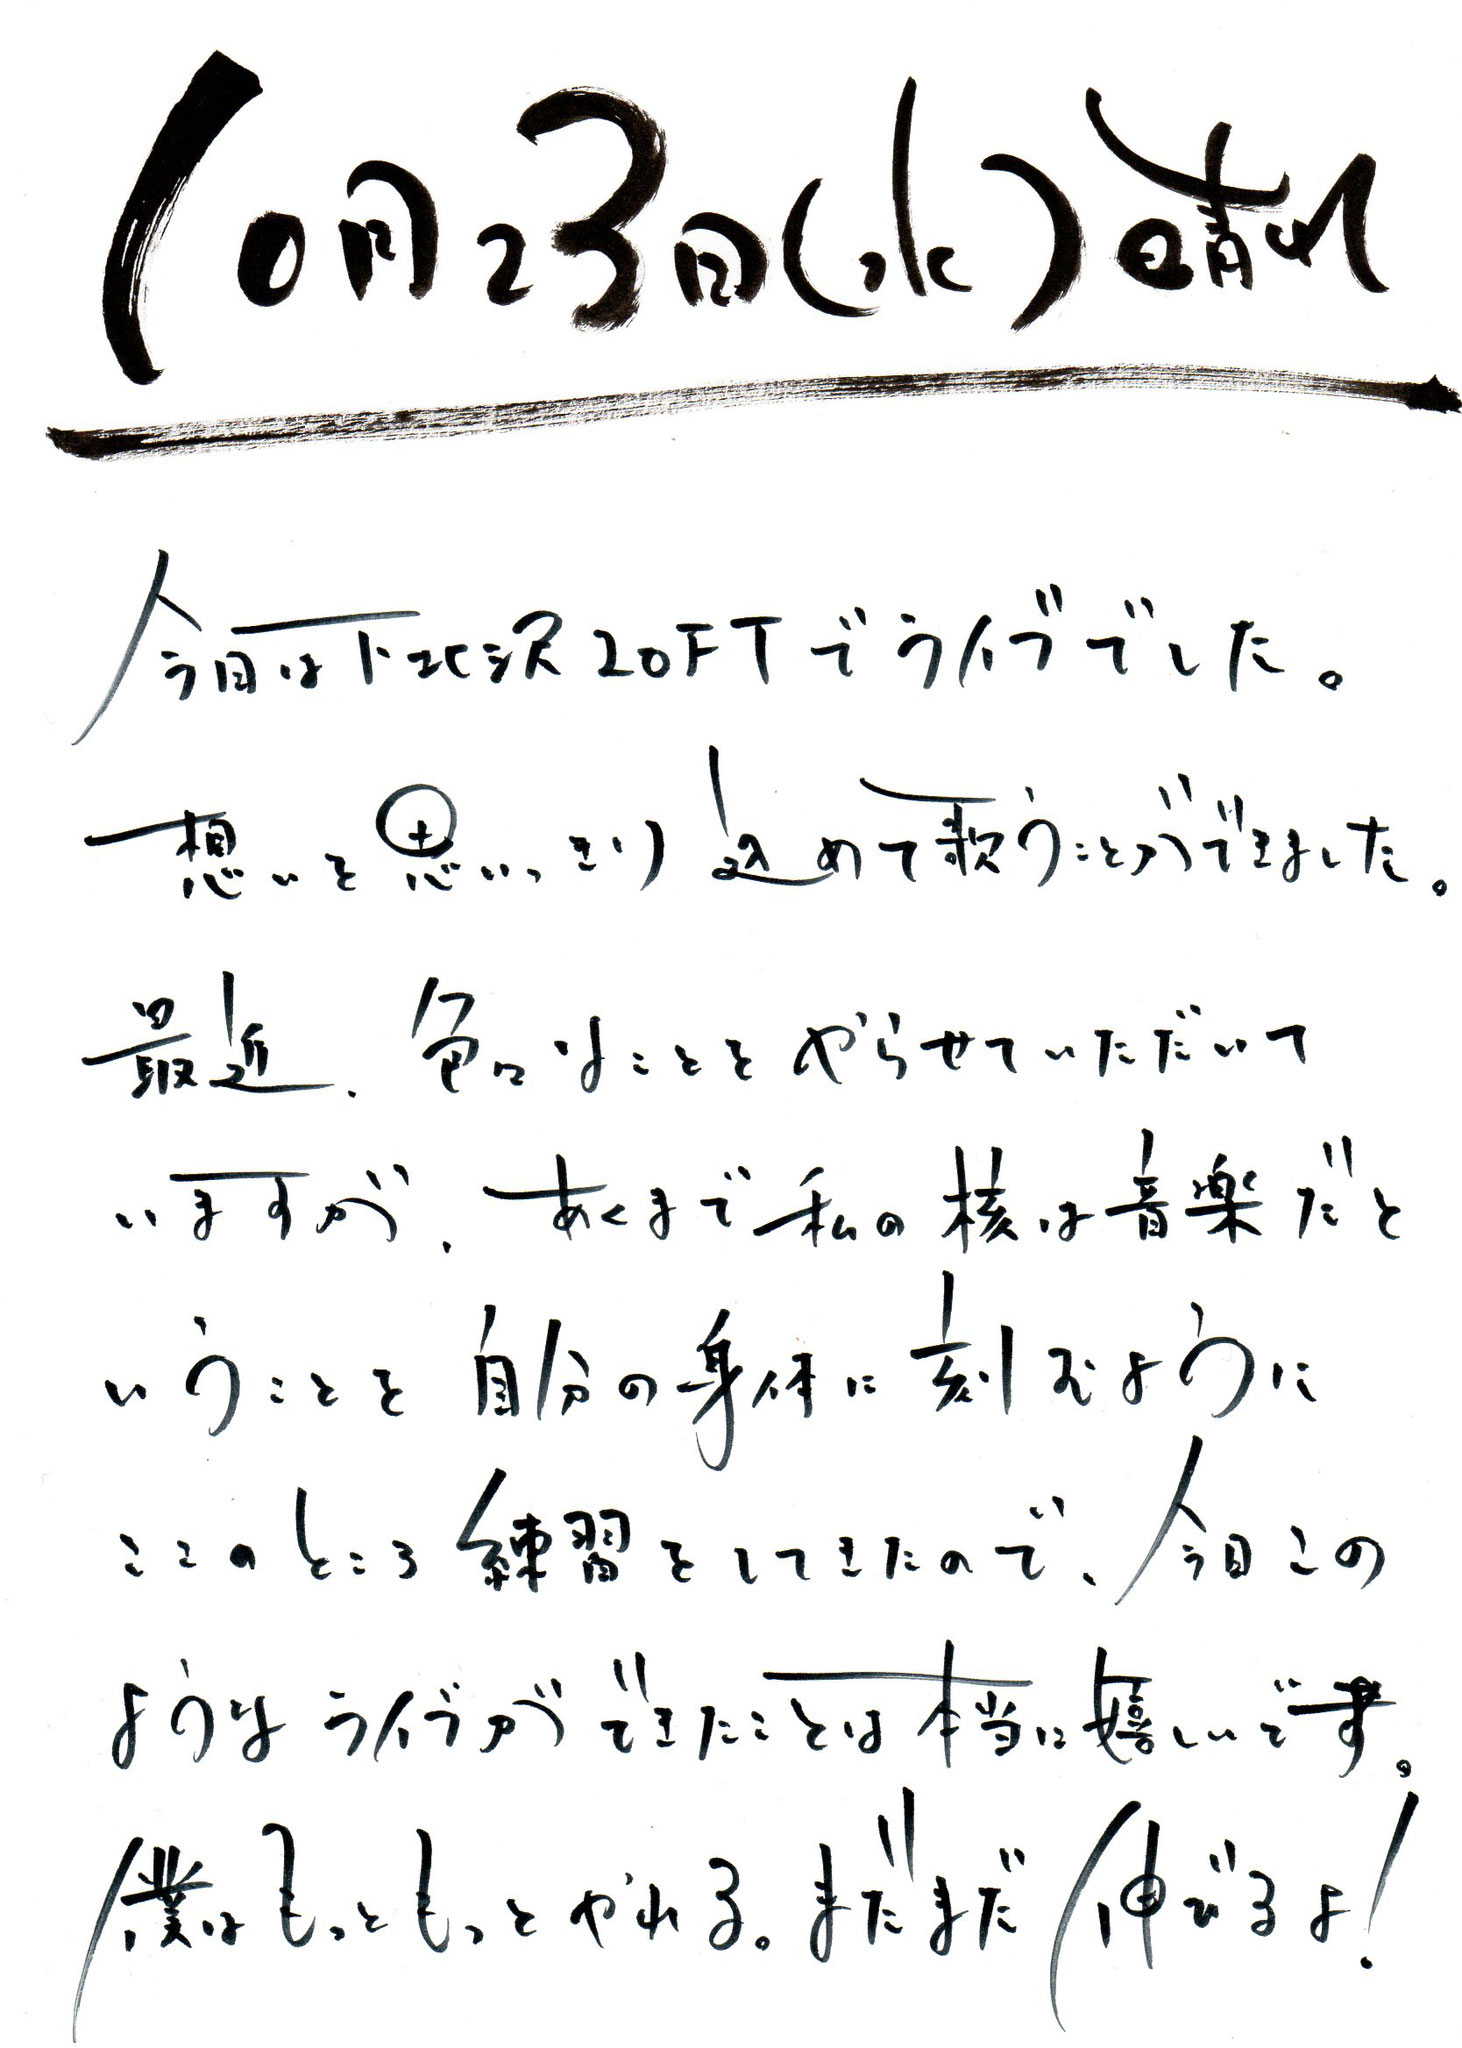 10月23日(水)晴れ
今日は下北沢LOFTでライブでした。
想いを思いっきり込めて歌うことができました。
最近、色んなことをやらせていただいて
いますが、あくまで私の核は音楽だと
いうことを自分の身体に刻むように
ここのところ練習をしてきたので、今日この
ようなライブができたことは本当に嬉しいです。
僕はもっともっとやれる。まだまだ伸びるよ!